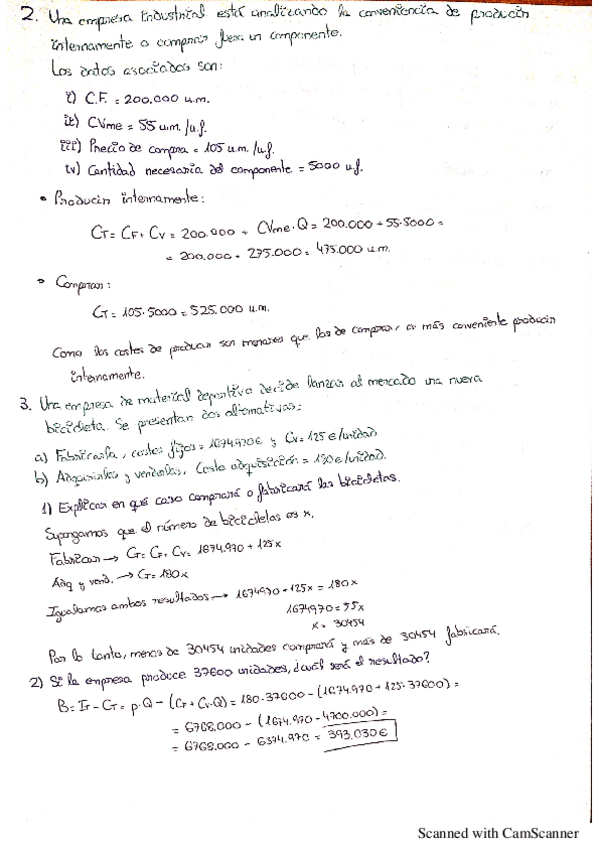 2. Una empresa industrial está analizando la conveniencia de producir
internamente o comprar fuera un componente.
Los datos asociados son:
i) C.F. = 200.000 u.m.
ii) CVme = 55 u.m./u.f.
iii) Precio de compra = 105 u.m./u.f.
iv) Cantidad necesaria del componente = 5000 u.f.
• Producir internamente:
CT = CF + CV = 200.000 + CVme·Q = 200.000 + 55·5000 =
= 200.000 + 275.000 = 475.000 u.m.
• Comprar:
CT = 105·5000 = 525.000 u.m.
Como los costes de producir son menores que los de comprar, es más conveniente producir
internamente.
3. Una empresa de material deportivo decide lanzar al mercado una nueva
bicicleta. Se presentan dos alternativas:
a) Fabricarla, costes fijos = 1674.970€ y CV = 125€/unidad
b) Adquirirlas y venderlas. Coste adquisición = 180€/unidad.
1) Explicar en qué caso comprará o fabricará las bicicletas.
Supongamos que el número de bicicletas es x.
Fabricar → CT = CF + CV = 1674.970 + 125x
Adq y vend. → CT = 180x
Igualamos ambos resultados → 1674970 + 125x = 180x
1674970 = 55x
x = 30454
Por lo tanto, menos de 30454 unidades comprará y más de 30454 fabricará.
2) Si la empresa produce 37600 unidades, ¿cuál será el resultado?
B = IT - CT = p·Q - (CF + CV·Q) = 180·37600 - (1674.970 + 125·37600) =
= 6768.000 - (1674.970 - 4700.000) =
= 6768.000 - 6374.970 = 393.030€
Scanned with CamScanner